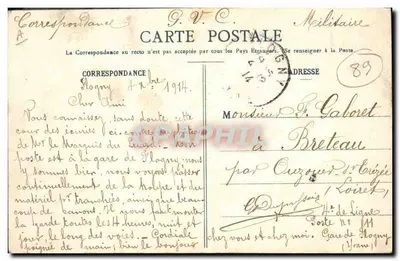 Correspondance D. V. C. Militaire
CARTE POSTALE
La Correspondance au recto n'est pas acceptée par tous les Pays Étrangers. Se renseigner à la Poste.
CORRESPONDANCE
ADRESSE
89
Rogny 4 Xbre 1914.
Cher Ami
Vous connaissez sans doute cette
cour des
de Mr le Marquis des
poste est à la gare de Rogny nous
y sommes bien, nous voyons passer
continuellement de la troupe et du
matériel pr tranchées, ainsi que beau
coup de canons. Il nous faut monter
la garde toutes les 4 heures, nuit et
jour, le long des voies. Cordiale
poignet de main, bien le bonjour
Monsieur F. Gaboret
à
Breteau
par Ouzouer s/ Trézée
(Loiret)
de Ligne
Poste No
Gare de Rogny
(Yonne)
chez vous et chez moi.